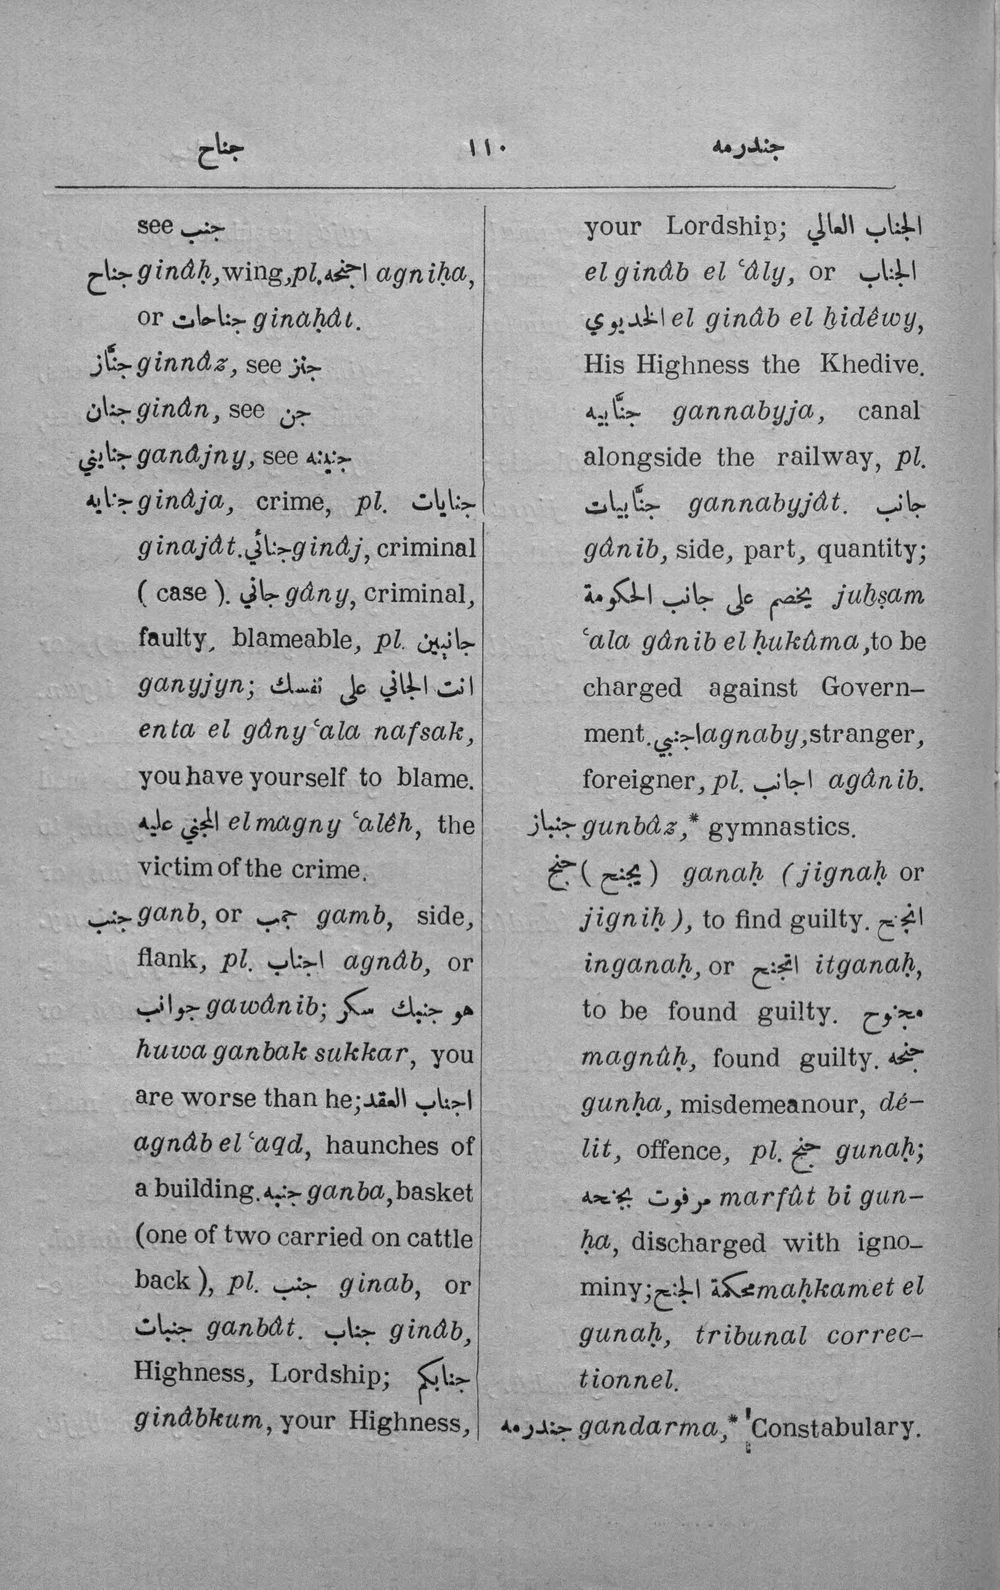 جناح ١١٠ جندرمه
see جنب
جناح ginâḥ, wing, pl. اجنحه agniḥa,
or جناحات ginaḥât.
جنَّاز ginnâz, see جنز
جنان ginân, see جن
جنايني ganâjny, see جنينه
جنايه ginâja, crime, pl. جنايات
ginajât. جنائي ginâj, criminal
( case ). جاني gâny, criminal,
faulty, blameable, pl. جانيين
ganyjyn; انت الجاني على نفسك
enta el gâny ʿala nafsak,
you have yourself to blame.
المجني عليه el magny ʿalêh, the
victim of the crime.
جنب ganb, or جمب gamb, side,
flank, pl. اجناب agnâb, or
جوانب gawânib; هو جنبك سكر
huwa ganbak sukkar, you
are worse than he; اجناب العقد
agnâb el ʿaqd, haunches of
a building. جنبه ganba, basket
(one of two carried on cattle
back ), pl. جنب ginab, or
جنبات ganbât. جناب ginâb,
Highness, Lordship; جنابكم
ginâbkum, your Highness,
your Lordship; الجناب العالي
el ginâb el ʿâly, or الجناب
الخديوي el ginâb el ḫidêwy,
His Highness the Khedive.
جنَّابيه gannabyja, canal
alongside the railway, pl.
جنَّابيات gannabyjât. جانب
gânib, side, part, quantity;
يخصم على جانب الحكومة juḫṣam
ʿala gânib el ḥukûma, to be
charged against Govern-
ment. اجنبي agnaby, stranger,
foreigner, pl. اجانب agânib.
جنباز gunbâz,* gymnastics.
جنح ( يجنح ) ganaḥ (jignaḥ or
jigniḥ ), to find guilty. انجنح
inganaḥ, or اتجنح itganaḥ,
to be found guilty. مجنوح
magnûḥ, found guilty. جنحه
gunḥa, misdemeanour, dé-
lit, offence, pl. جنح gunaḥ;
مرفوت بجنحه marfût bi gun-
ḥa, discharged with igno-
miny; محكمة الجنح maḥkamet el
gunaḥ, tribunal correc-
tionnel.
جندرمه gandarma,* Constabulary.